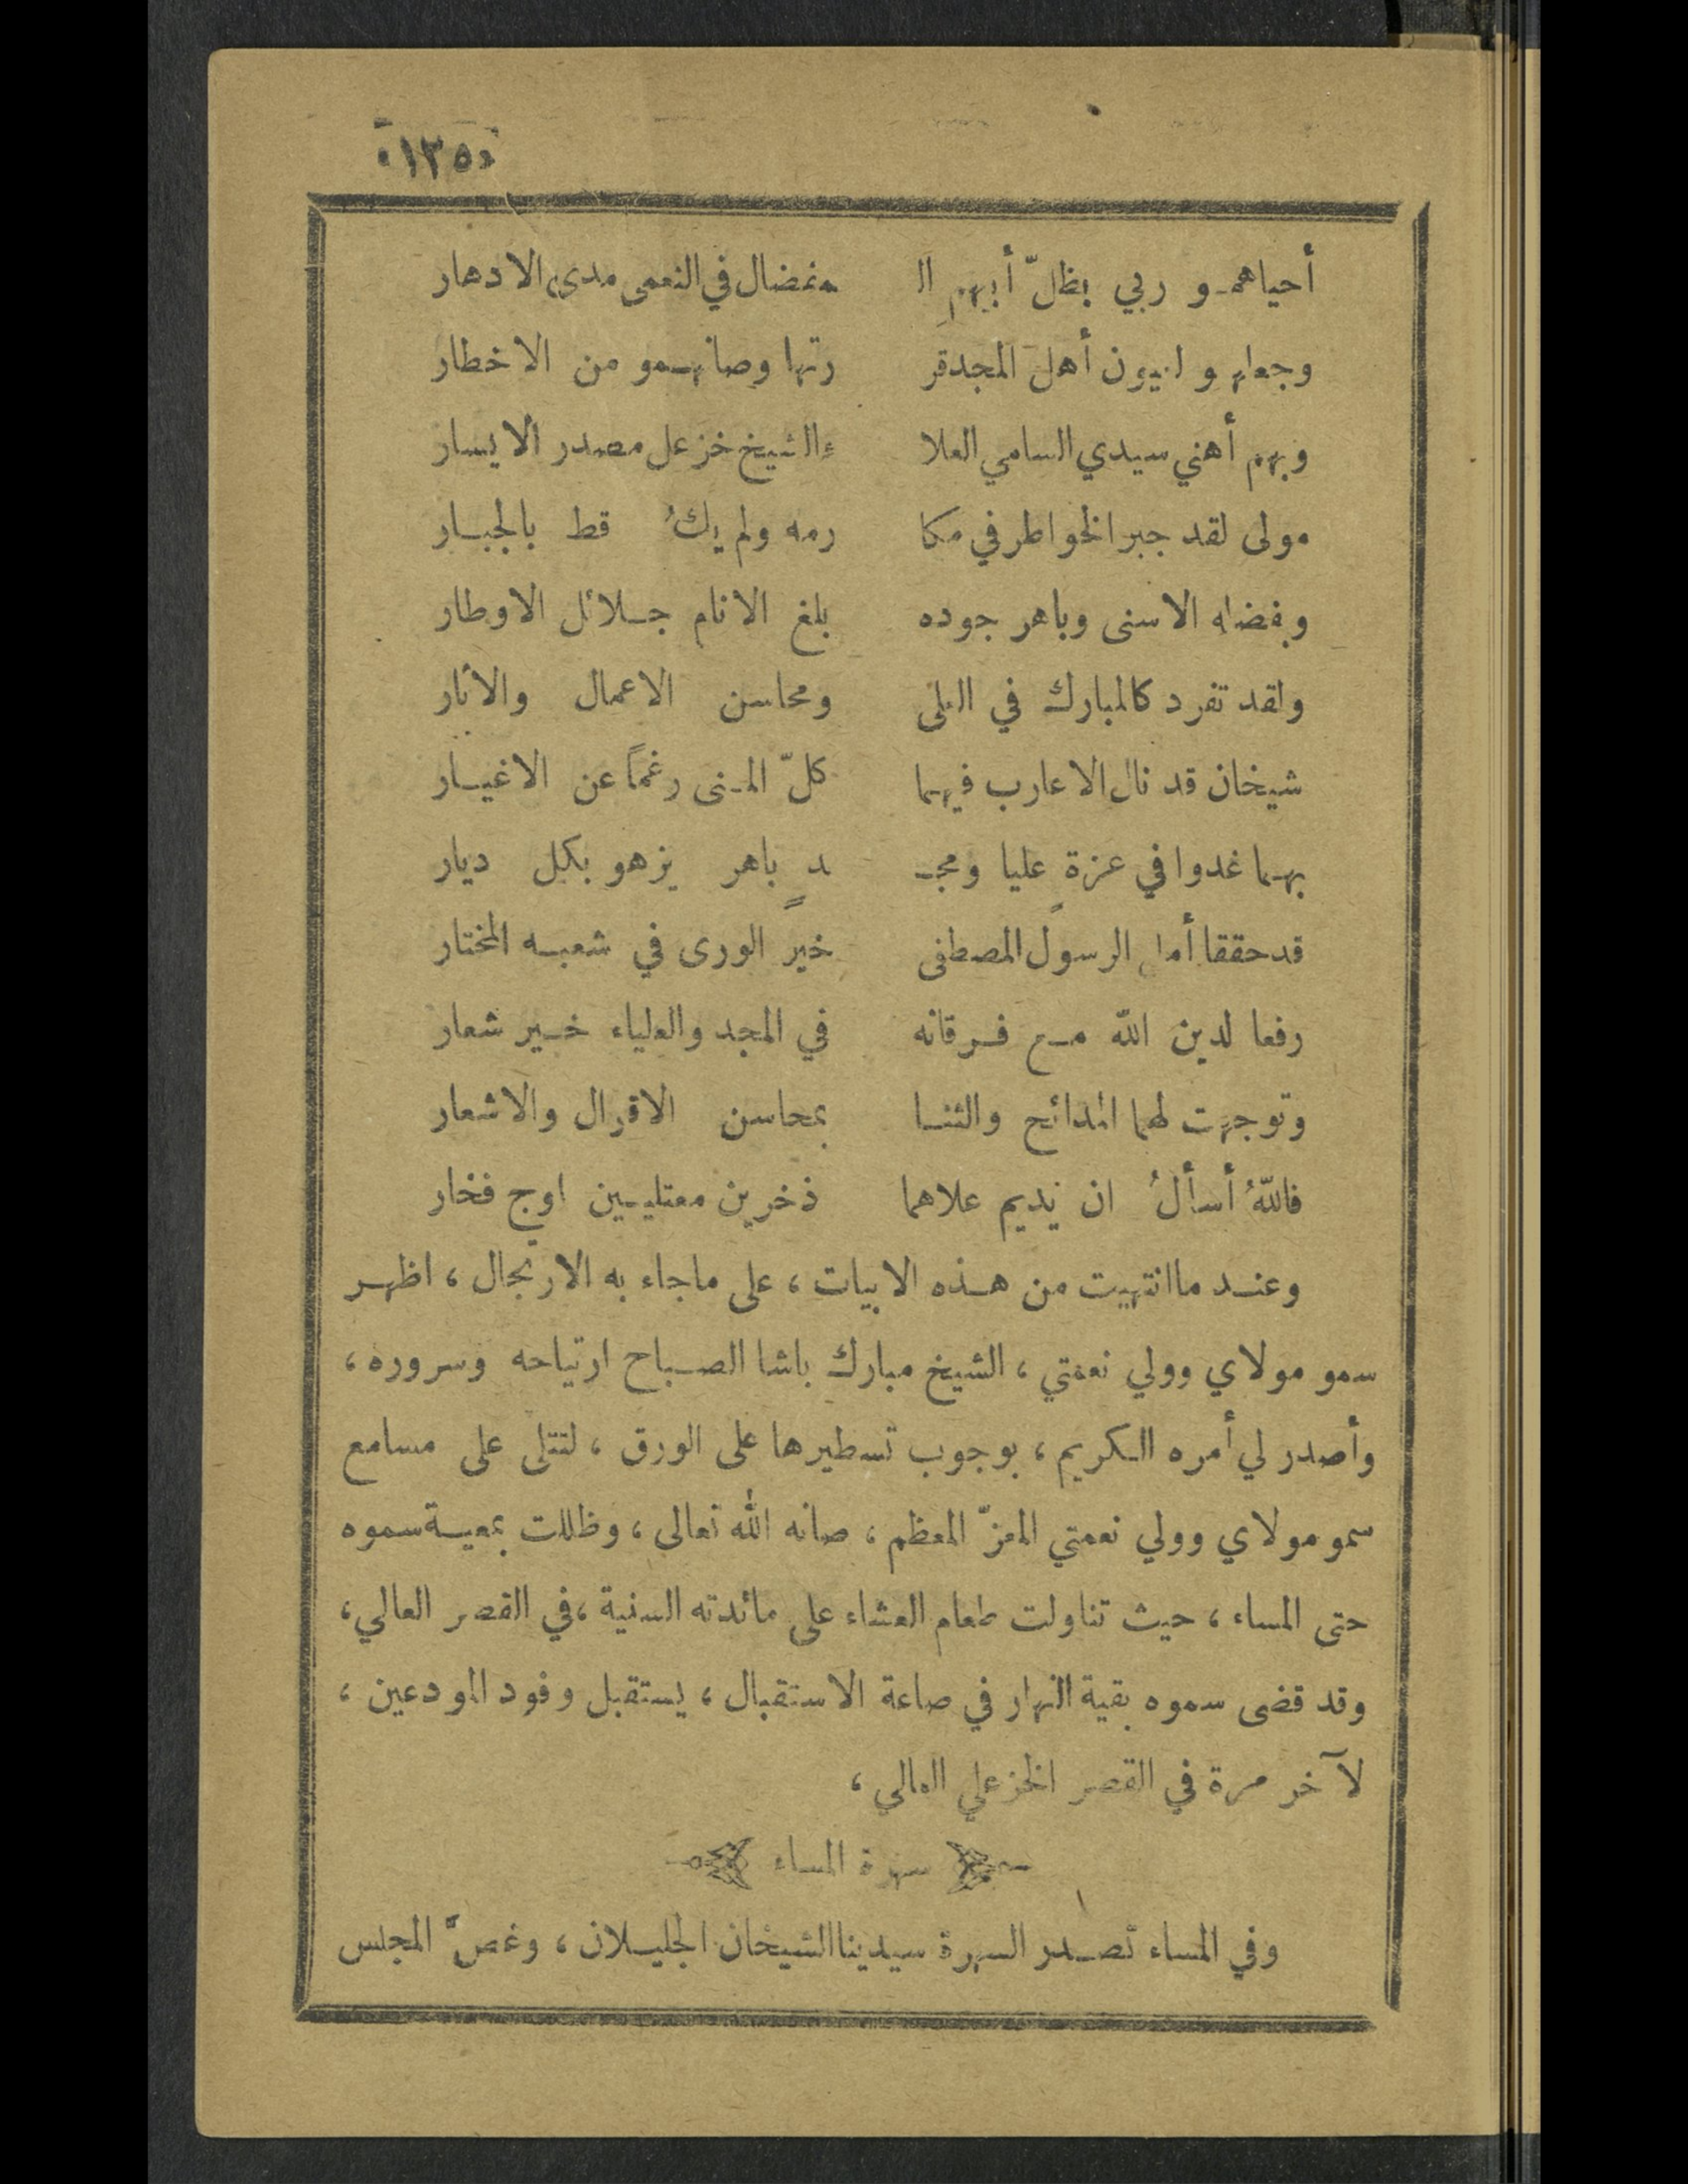 «١٢٥»
أحياهمو ربي بظلّ أبيهمِ ال مفضال في النعمى مدى الادهار
وجعلهمو لعيون أهل المجد قر رتها وصانهمو من الاخطار
وبهم أهني سيدي السامي العلا ء الشيخ خزعل مصدر الايسار
مولى لقد جبر الخواطر في مكا رمه ولم يكُ قط بالجبار
وبفضله الاسنى وباهر جوده بلغ الانام جلائل الاوطار
ولقد تفرد كالمبارك في العلى ومحاسن الاعمال والآثار
شيخان قد نال الاعارب فيهما كلّ المنى رغماً عن الاغيار
بهما غدوا في عزةٍ عليا ومجـ ـدٍ باهر يزهو بكل ديار
قد حققا أمل الرسول المصطفى خير الورى في شعبه المختار
رفعا لدين الله مع فرقانه في المجد والعلياء خير شعار
وتوجهت لهما المدائح والثنا بمحاسن الاقوال والاشعار
فاللهُ أسألُ ان يديم علاهما ذخرين معتليين اوج فخار
وعند ما انتهيت من هذه الابيات ، على ماجاء به الارتجال ، اظهر
سمو مولاي وولي نعمتي ، الشيخ مبارك باشا الصباح ارتياحه وسروره ،
وأصدر لي أمره الكريم ، بوجوب تسطيرها على الورق ، لتتلى على مسامع
سمو مولاي وولي نعمتي المعزّ المعظم ، صانه الله تعالى ، وظللت بمعية سموه
حتى المساء ، حيث تناولت طعام العشاء على مائدته السنية ، في القصر العالي ،
وقد قضى سموه بقية النهار في صاعة الاستقبال ، يستقبل وفود المودعين ،
لآخر مرة في القصر الخزعلي العالي ،
سهرة المساء
وفي المساء تصدر السهرة سيدينا الشيخان الجليلان ، وغصّ المجلس